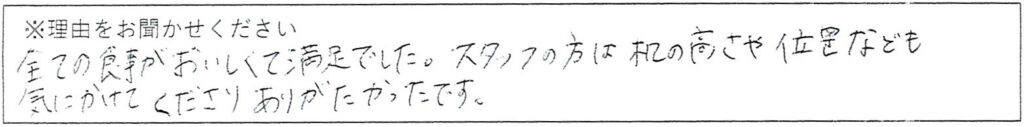 ※理由をお聞かせください
全ての食事がおいしくて満足でした。スタッフの方は机の高さや位置なども
気にかけてくださりありがたかったです。